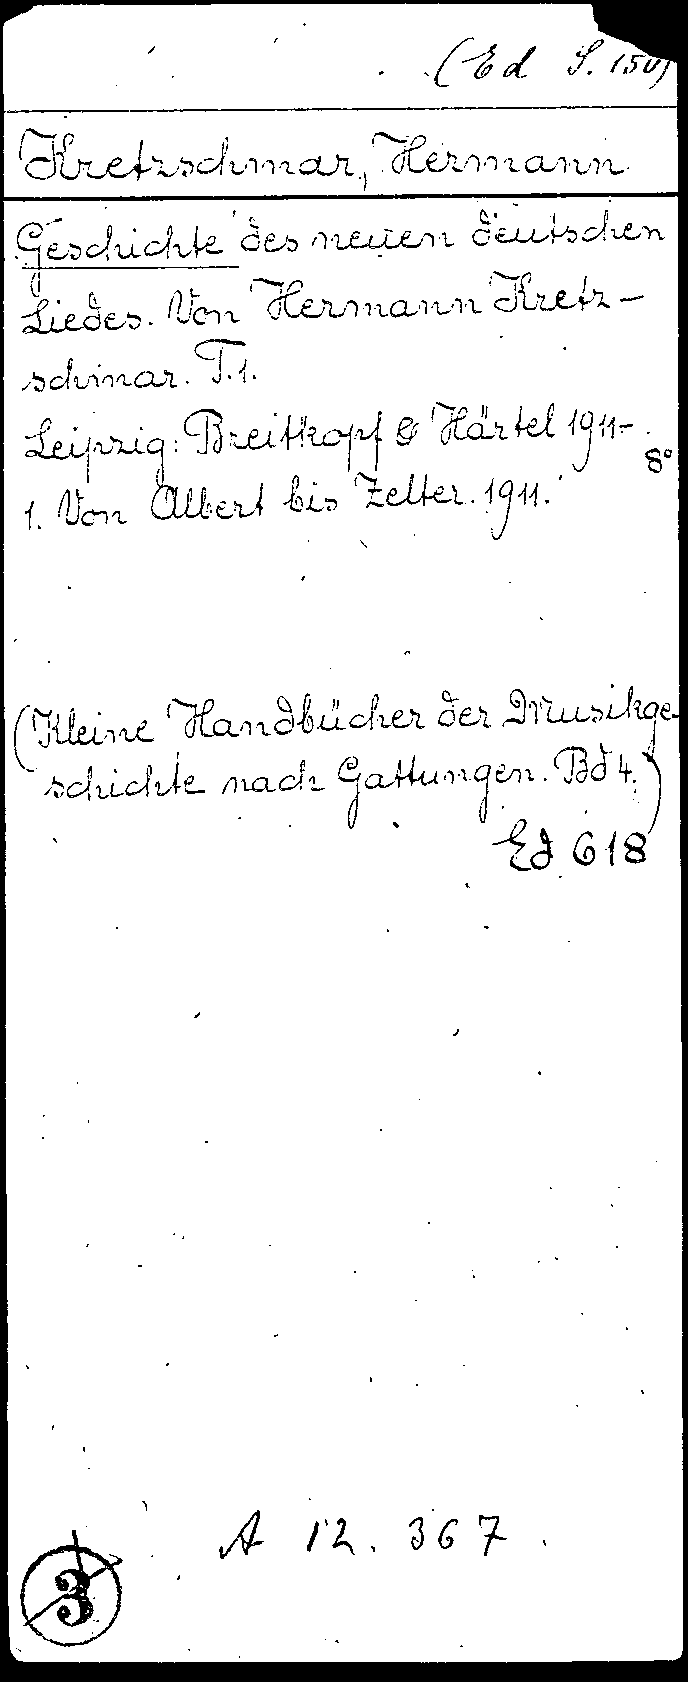 (Ed S. 150)
Kretzschmar, Hermann
Geschichte des neuen deutschen
Liedes. Von Hermann Kretz-
schmar. T.1.
Leipzig: Breitkopf & Härtel 1911-
8°
1. Von Albert bis Zelter. 1911.
(Kleine Handbücher der Musikge-
schichte nach Gattungen. Bd 4.)
Ed 618
A 12. 367.
3